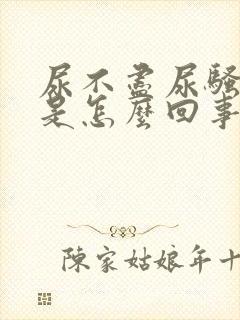 尿不盡尿騷
是怎麼回事
陳家姑娘年十